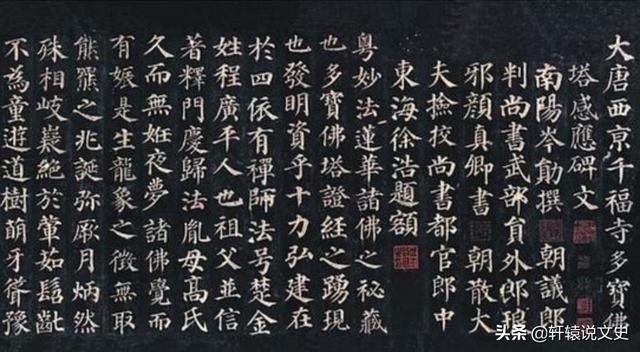 大唐西京千福寺多寶佛
塔感應碑文
南陽岑勛撰 朝議郎
判尚書武部員外郎琅
邪顏真卿書 朝散大
夫撿校尚書都官郎中
東海徐浩題額
粵妙法蓮華諸佛之秘藏
也多寶佛塔證經之踴現
也發明資乎十力弘建在
於四依有禪師法号楚金
姓程廣平人也祖父並信
著釋門慶歸法胤母髙氏
久而無姙夜夢諸佛覺而
有娠是生龍象之徵無取
熊羆之兆誕弥厥月炳然
殊相岐嶷絕於葷茹髫齔
不為童遊道樹萌牙聳豫
头条 @轩辕说文史